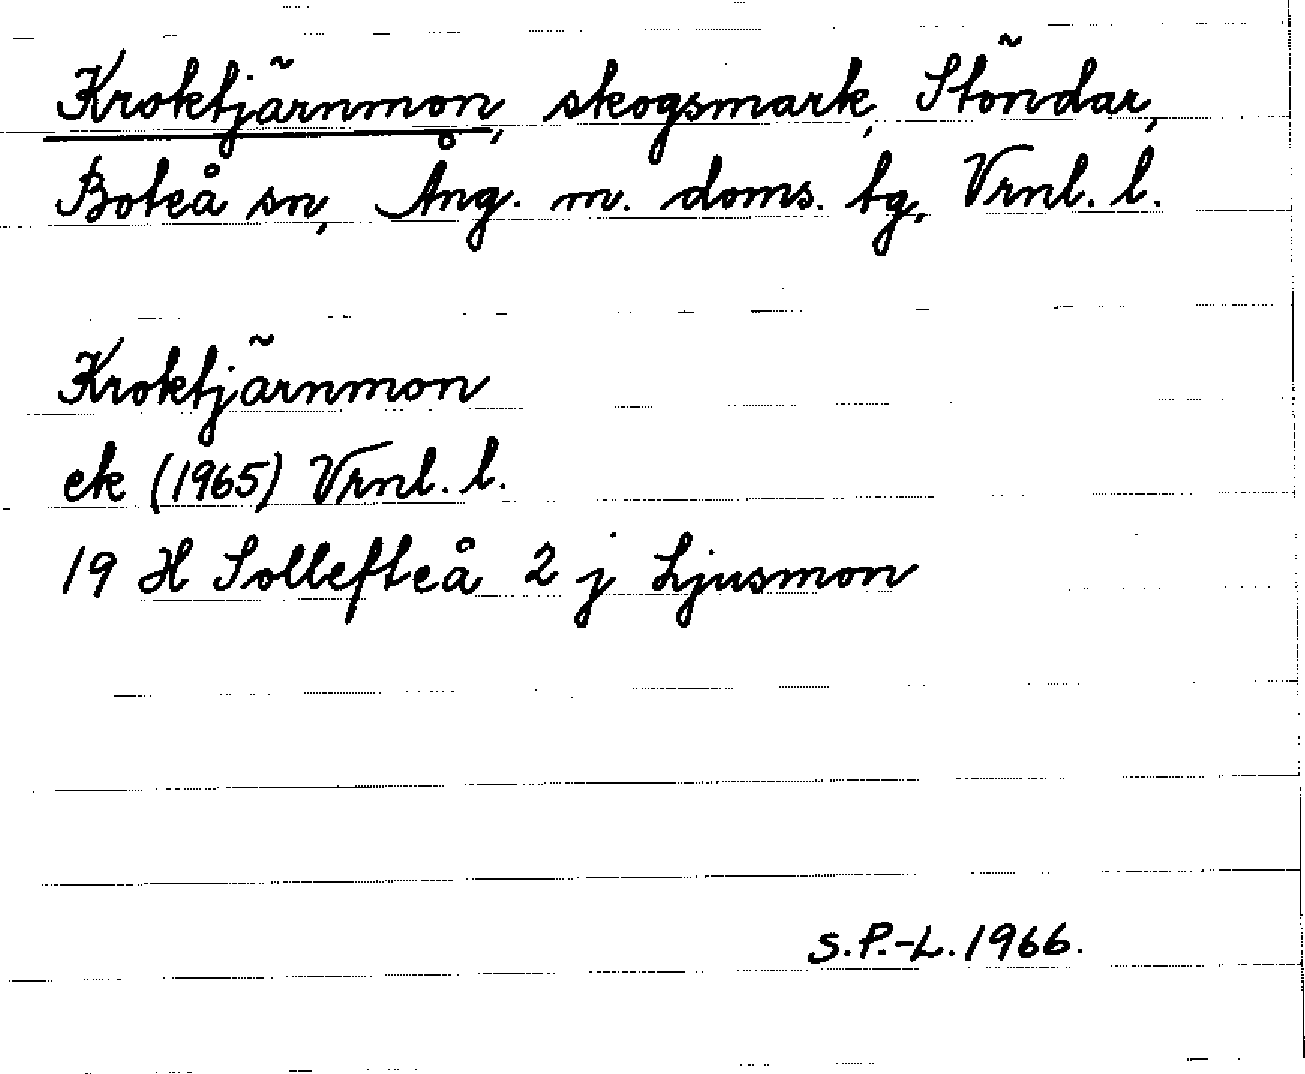 Kroktjärnmon, skogsmark, Stöndar,
Boteå sn, Ång. m. doms. tg, Vrnl. l.
Kroktjärnmon
ek (1965) Vrnl. l.
19 H Sollefteå 2 j Ljusmon
S.P.-L. 1966.